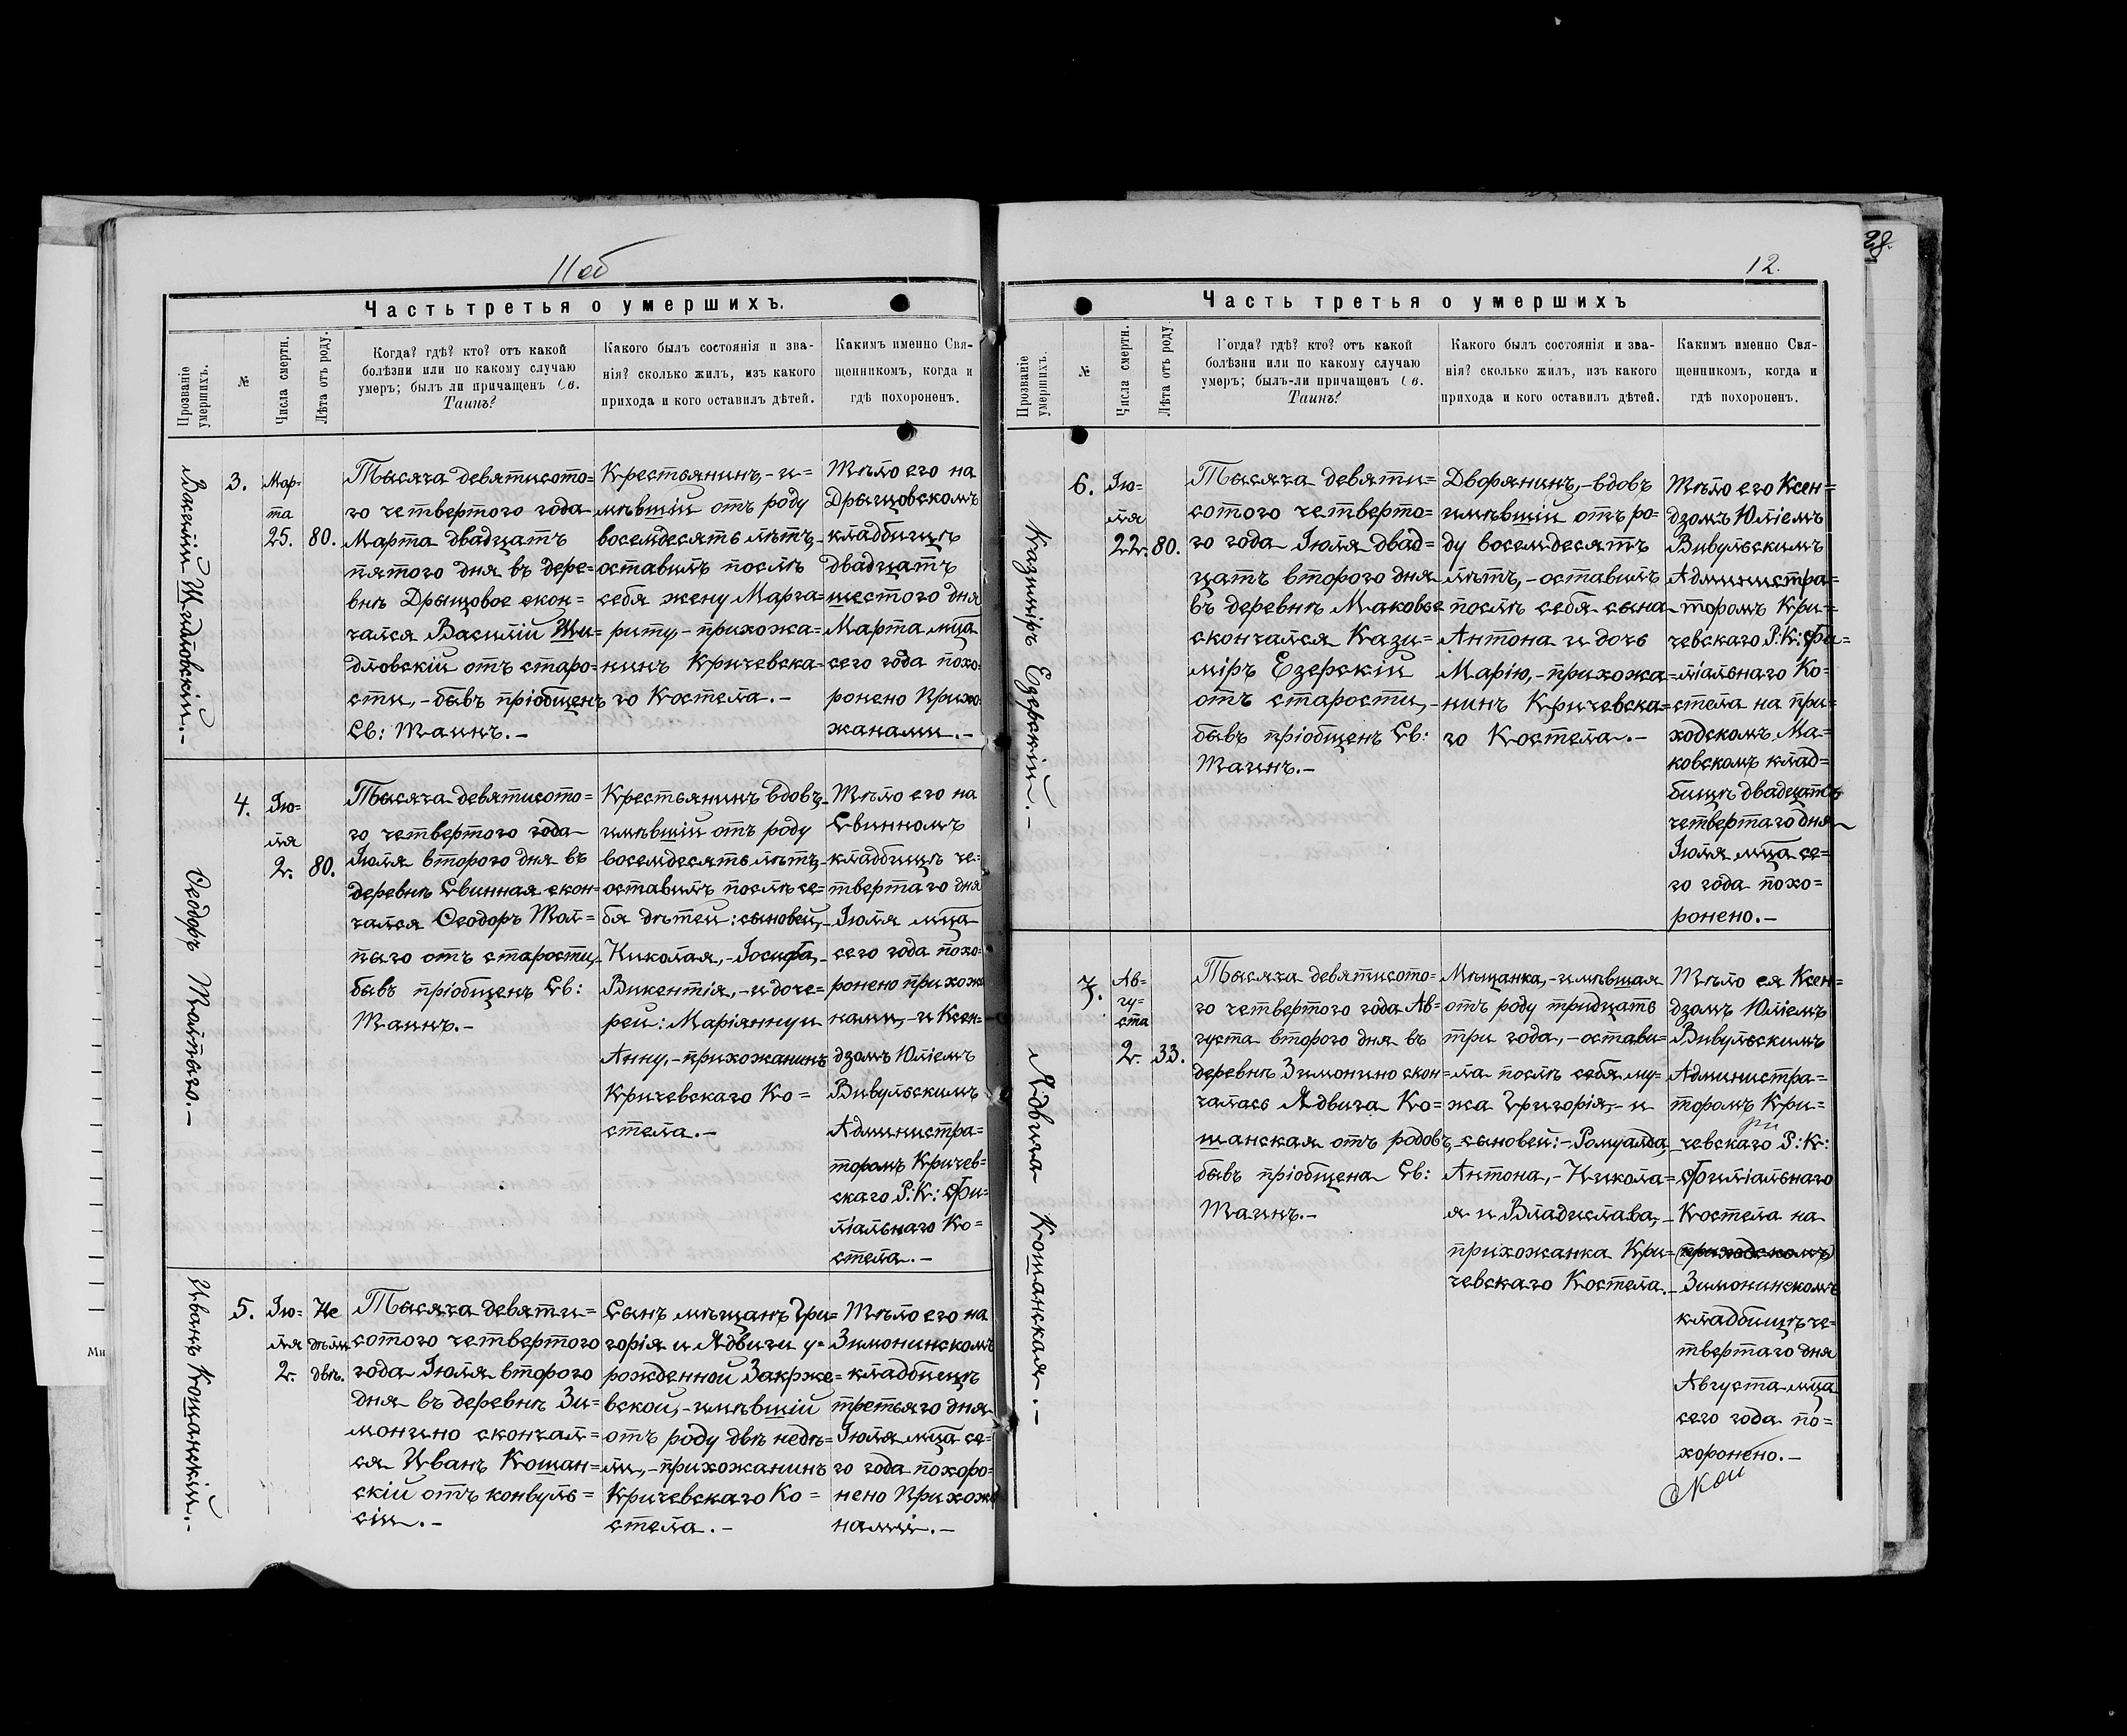 11 об
Часть третья о умершихъ.
Прозваніе умершихъ.
№
Числа смерти.
Лѣта отъ роду.
Когда? гдѣ? кто? отъ какой
болѣзни или по какому случаю
умеръ; былъ ли причащенъ Св.
Таинъ?
Какого былъ состоянія и зва-
нія? сколько жилъ, изъ какого
прихода и кого оставилъ дѣтей.
Какимъ именно Свя-
щенникомъ, когда и
гдѣ похороненъ.
Василій Шидловскій.-
3.
Мар-
та
25.
80.
Тысяча девятисото=
го четвертого года
Марта двадцать
пятого дня въ дере=
внѣ Дрыщовое скон=
чался Василій Ши=
дловскій отъ старо=
сти,-бывъ пріобщенъ
Св: Таинъ.-
Крестьянинъ,-и=
мѣвшій отъ роду
восемдесятъ лѣтъ,-
оставилъ послѣ
себя жену Марга=
риту,-прихожа=
нинъ Кричевска=
го Костела.-
Тѣло его на
Дрыщовскомъ
кладбищѣ
двадцать
шестого дня
Марта мца
сего года похо=
ронено Прихо=
жанами.-
Ѳеодоръ Толпыго.-
4.
Ію=
ля
2.
80.
Тысяча девятисото=
го четвертого года
Іюля второго дня въ
деревнѣ Свинная скон=
чался Ѳеодоръ Тол=
пыго отъ старости,-
бывъ пріобщенъ Св:
Таинъ.-
Крестьянинъ вдовъ,-
имѣвшій отъ роду
восемдесятъ лѣтъ,-
оставилъ послѣ се=
бя дѣтей: сыновей,-
Николая,-Іосифа,-
Викентія,-и доче=
рей: Маріянну и
Анну,-прихожанинъ
Кричевскаго Ко=
стела.-
Тѣло его на
Свинномъ
кладбищѣ че=
твертаго дня
Іюля мца
сего года похо=
ронено прихожа
нами,-и Ксен=
дзомъ Юліемъ
Вивульскимъ
Администра=
торомъ Кричев=
скаго Р:К: Фи=
ліальнаго Ко=
стела.-
Иванъ Кошанскій.-
5.
Ію=
ля
2.
Не
дѣли
двѣ.
Тысяча девяти=
сотого четвертого
года Іюля второго
дня въ деревнѣ Зи=
монино скончал=
ся Иванъ Кошан=
скій отъ конвуль=
сіи.-
Сынъ мѣщанъ Гри=
горія и Ядвиги у=
рожденной Закрже=
вской,-имѣвшій
отъ роду двѣ недѣ=
ли,-прихожанинъ
Кричевскаго Ко=
стела.-
Тѣло его на
Зимонинскомъ
кладбищѣ
третьяго дня
Іюля мца се=
го года похоро=
нено Прихожа
нами.-
12.
28.
Часть третья о умершихъ
Прозваніе умершихъ.
№
Числа смерти.
Лѣта отъ роду.
Когда? гдѣ? кто? отъ какой
болѣзни или по какому случаю
умеръ; былъ-ли причащенъ Св.
Таинъ?
Какого былъ состоянія и зва-
нія? сколько жилъ, изъ какого
прихода и кого оставилъ дѣтей.
Какимъ именно Свя-
щенникомъ, когда и
гдѣ похороненъ.
Казиміръ Езерскій.-
6.
Ію=
ля
22.
80.
Тысяча девяти=
сотого четверто=
го года Іюля двад=
цать второго дня
въ деревнѣ Маковье
скончался Кази=
міръ Езерскій
отъ старости,-
бывъ пріобщенъ Св:
Таинъ.-
Дворянинъ,-вдовъ
имѣвшій отъ ро=
ду восемдесятъ
лѣтъ,-оставилъ
послѣ себя сына
Антона и дочь
Марію,-прихожа=
нинъ Кричевска=
го Костела.-
Тѣло его Ксен=
дзомъ Юліемъ
Вивульскимъ
Администра=
торомъ Кри=
чевскаго Р:К: Фи=
ліальнаго Ко=
стела на при=
ходскомъ Ма=
ковскомъ клад=
бищѣ двадцать
четвертаго дня
Іюля мца се=
го года похо=
ронено.-
Ядвига Кошанская.-
7.
Ав=
гу=
ста
2.
33.
Тысяча девятисото=
го четвертого года Ав=
густа второго дня въ
деревнѣ Зимонино скон=
чалась Ядвига Ко=
шанская отъ родовъ,-
бывъ пріобщена Св:
Таинъ.-
Мѣщанка,-имѣвшая
отъ роду тридцать
три года,-остави=
ла послѣ себя му=
жа Григорія,-и
сыновей:-Ромуалда,
Антона,-Никола=
я и Владислава,-
прихожанка Кри=
чевскаго Костела.-
Тѣло ея Ксен=
дзомъ Юліемъ
Вивульскимъ
Администра=
торомъ Кри=
чевскаго Р:К:
Филіальнаго
Костела на
(приходскомъ)
Зимонинскомъ
кладбищѣ че=
твертаго дня
Августа мца
сего года по=
хоронено.-